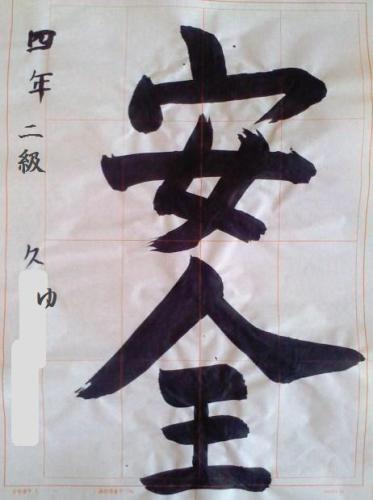 安全
四年二級 久ゆ